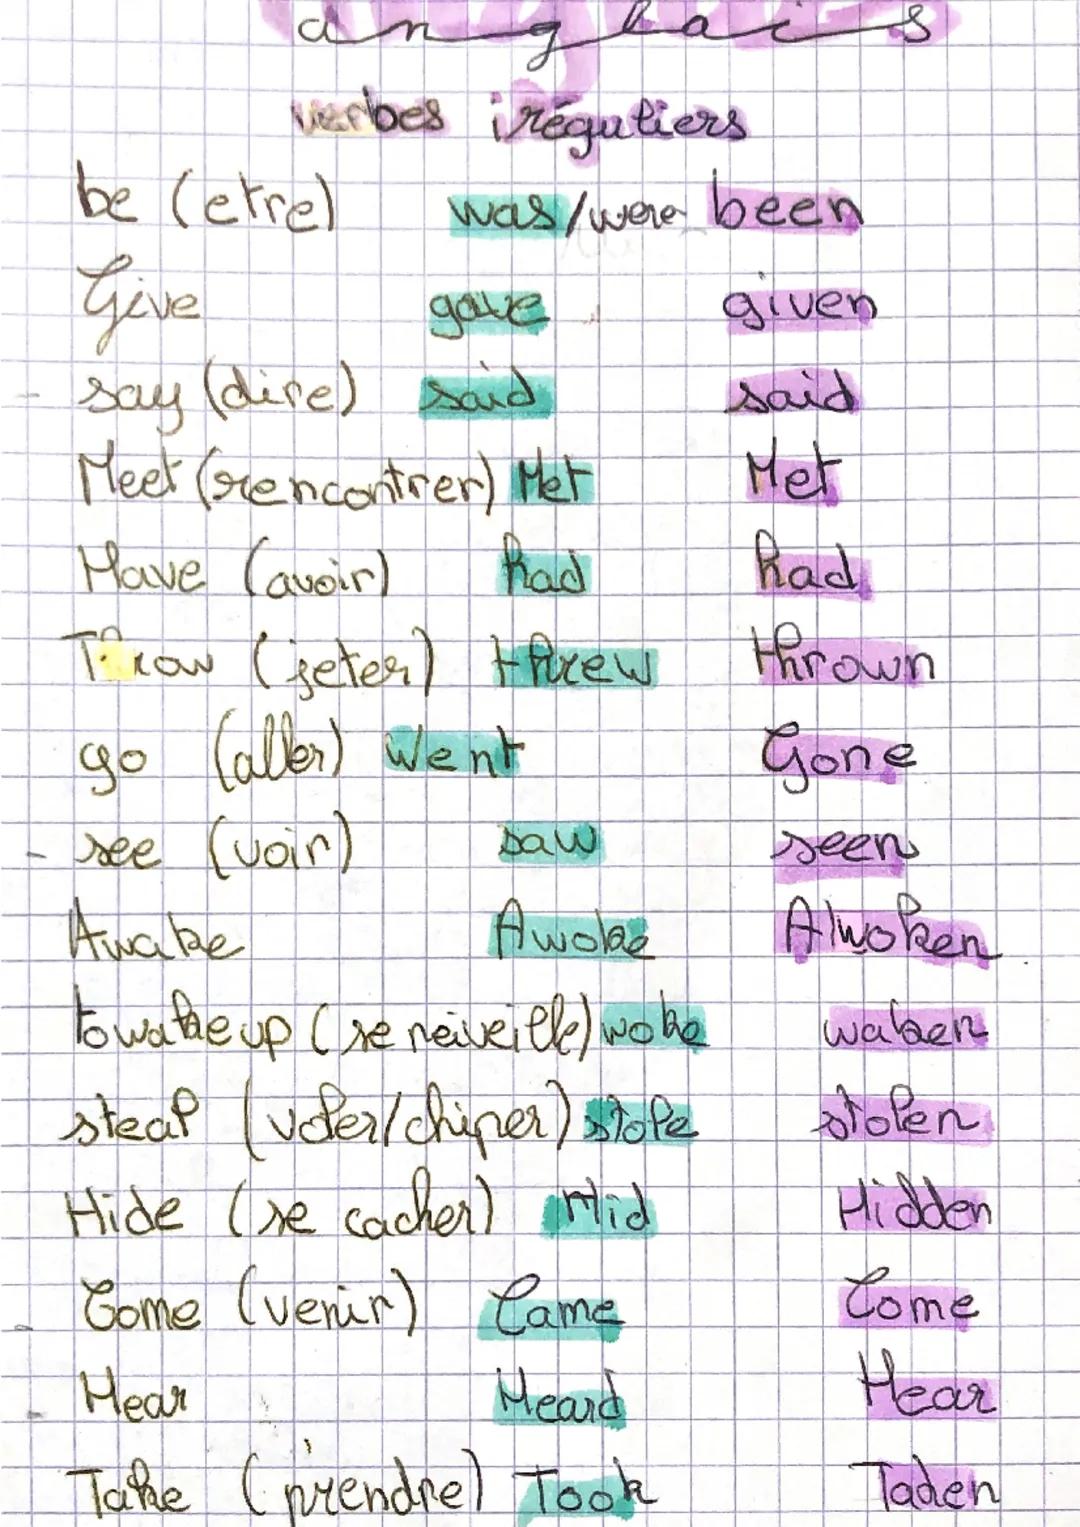 anglais
verbes iréguliers
be (etre) was/were been
Give gave given
say (dire) said said
Meet (rencontrer) Met Met
Have (avoir) had had
Throw (jeter) threw thrown
go (aller) went Gone
see (voir) saw seen
Awake Awoke Awoken
to wake up (se reiveille) woke waken
steal (voler/chiper) stole stolen
Hide (se cacher) Hid Hidden
Come (venir) Came Come
Hear Heard Hear
Take (prendre) Took Taken